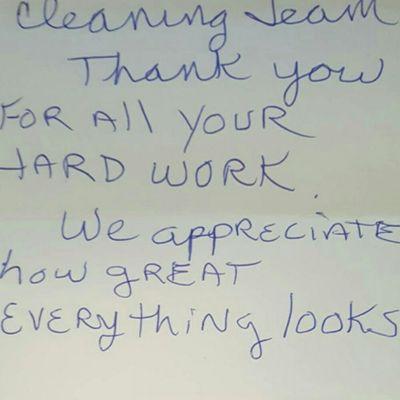 Cleaning Team
Thank you
FOR All YOUR
HARD WORK.
We appRECIATE
how gREAT
EVERything looks